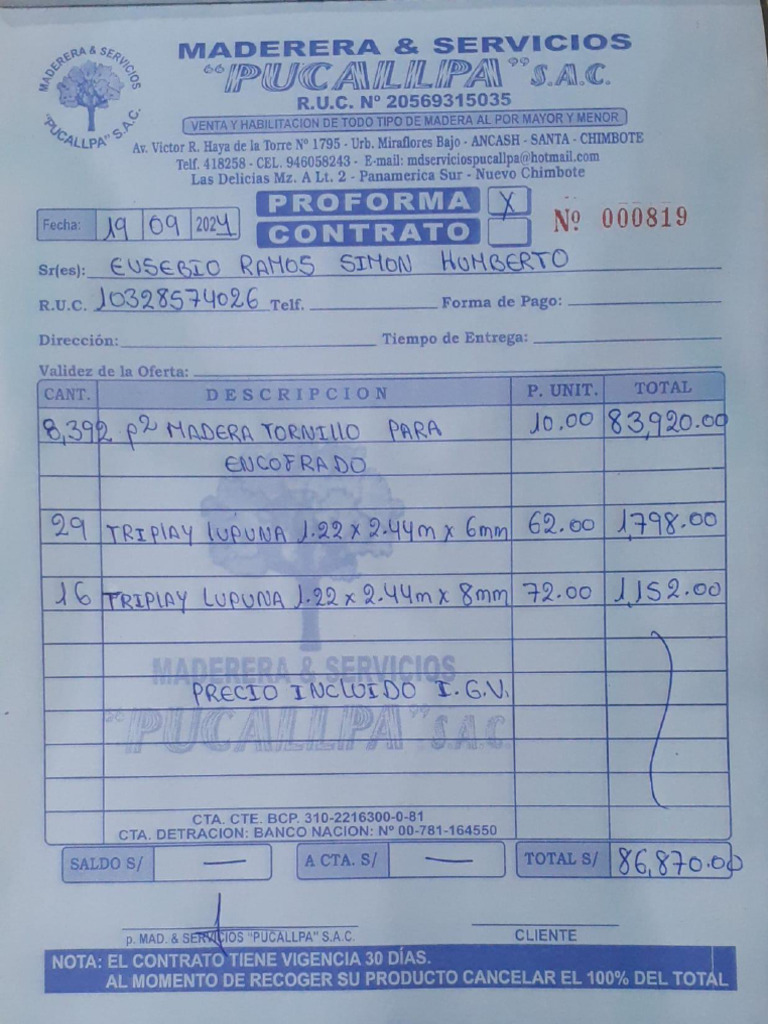 MADERERA & SERVICIOS
"PUCALLPA" S.A.C.
MADERERA & SERVICIOS
"PUCALLPA" S.A.C.
R.U.C. Nº 20569315035
VENTA Y HABILITACION DE TODO TIPO DE MADERA AL POR MAYOR Y MENOR
Av. Victor R. Haya de la Torre Nº 1795 - Urb. Miraflores Bajo - ANCASH - SANTA - CHIMBOTE
Telf. 418258 - CEL. 946058243 - E-mail: mdserviciospucallpa@hotmail.com
Las Delicias Mz. A Lt. 2 - Panamerica Sur - Nuevo Chimbote
PROFORMA X
Fecha: 19 09 2024
CONTRATO
Nº 000819
Sr(es): EUSEBIO RAMOS SIMON HUMBERTO
R.U.C. 10328574026 Telf. Forma de Pago:
Dirección: Tiempo de Entrega:
Validez de la Oferta:
CANT. DESCRIPCION P. UNIT. TOTAL
8,392 p2 MADERA TORNILLO PARA 10.00 83,920.00
ENCOFRADO
29 TRIPLAY LUPUNA 1.22 x 2.44m x 6mm 62.00 1,798.00
16 TRIPLAY LUPUNA 1.22 x 2.44m x 8mm 72.00 1,152.00
MADERERA & SERVICIOS
PRECIO INCLUIDO I.G.V.
"PUCALLPA" S.A.C.
CTA. CTE. BCP. 310-2216300-0-81
CTA. DETRACION: BANCO NACION: Nº 00-781-164550
SALDO S/ — A CTA. S/ — TOTAL S/ 86,870.00
p. MAD. & SERVICIOS "PUCALLPA" S.A.C. CLIENTE
NOTA: EL CONTRATO TIENE VIGENCIA 30 DÍAS.
AL MOMENTO DE RECOGER SU PRODUCTO CANCELAR EL 100% DEL TOTAL